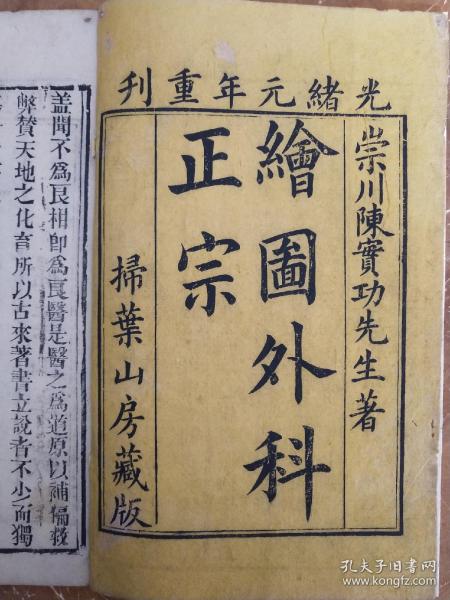 光緒元年重刊
崇川陳實功先生著
繪圖外科
正宗
掃葉山房藏版
盖聞不爲良相即爲良醫是醫之爲道原以補偏救
弊贊天地之化育所以古來著書立說者不少而獨
孔夫子旧书网
www.kongfz.com